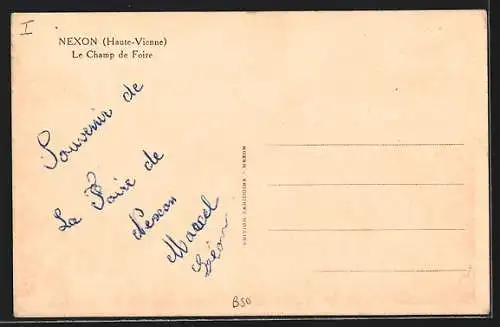 I
NEXON (Haute-Vienne)
Le Champ de Foire
Souvenir de
La Foire de
Nexon
Marcel
Léon
B50